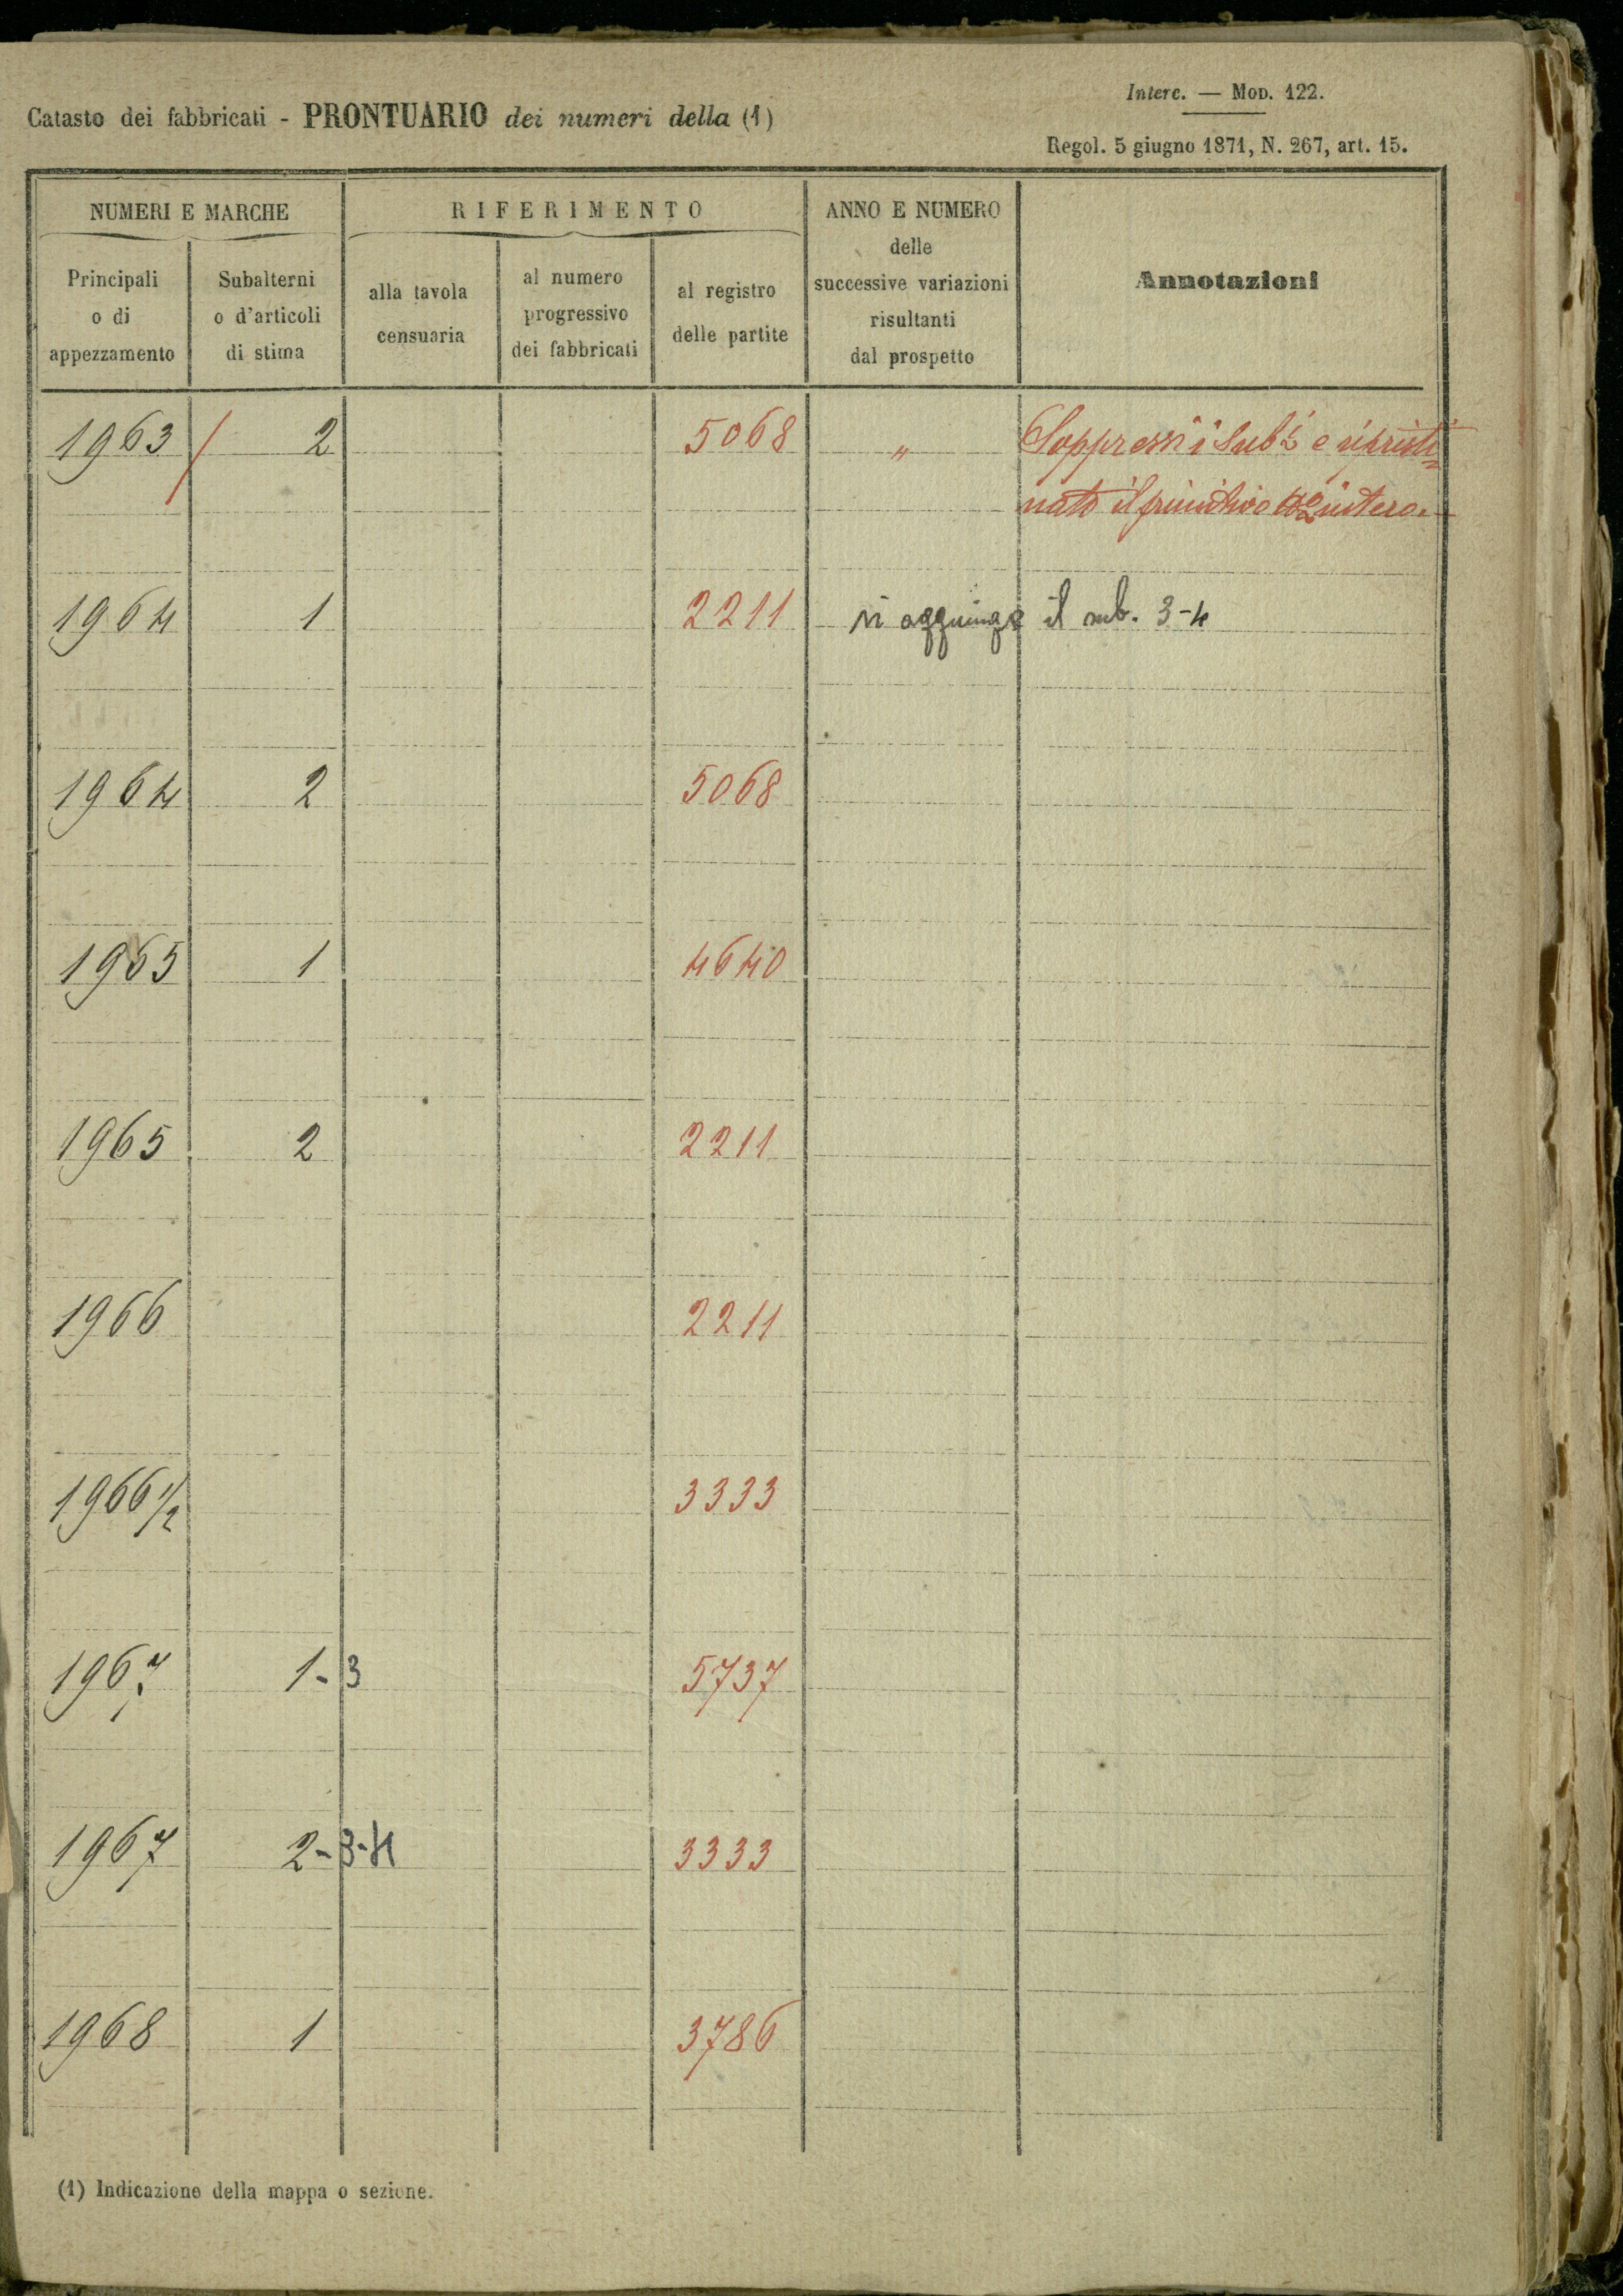 Interc. — Mod. 122.
Catasto dei fabbricati - PRONTUARIO dei numeri della (1)
Regol. 5 giugno 1871, N. 267, art. 15.
NUMERI E MARCHE
Principali
o di
appezzamento
Subalterni
o d'articoli
di stima
RIFERIMENTO
alla tavola
censuaria
al numero
progressivo
dei fabbricati
al registro
delle partite
ANNO E NUMERO
delle
successive variazioni
risultanti
dal prospetto
Annotazioni
1963 / 2 5068 " Soppressi i Sub i e ripristi=
nato il primitivo intero.
1964 1 2211 si aggiunge il sub. 3-4
1964 2 5068
1965 1 4640
1965 2 2211
1966 2211
1966 1/2 3333
1967 1-3 5737
1967 2-3-4 3333
1968 1 3786
(1) Indicazione della mappa o sezione.